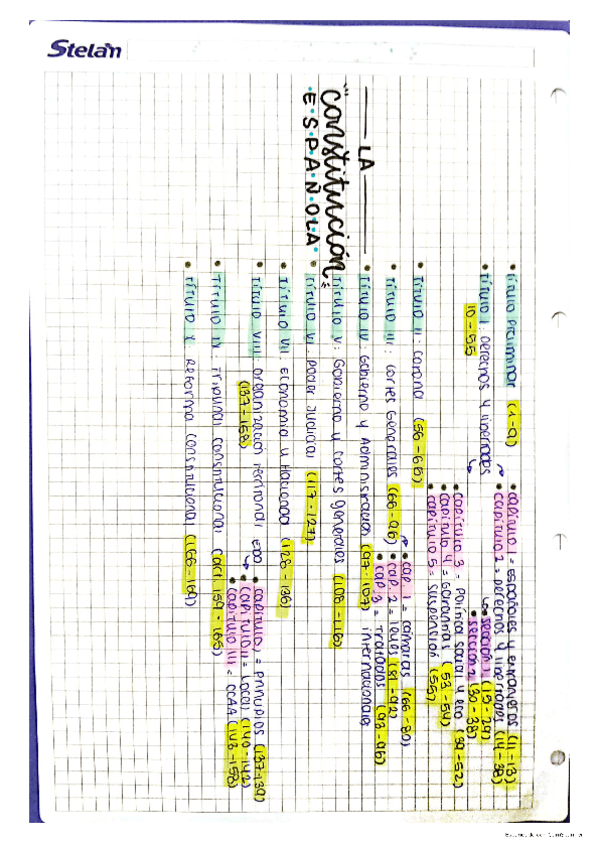 Stelan
LA
"Constitución"
E·S·P·A·Ñ·O·L·A
• TÍTULO Preliminar (1-9)
• TÍTULO I: Derechos y libertades
10-55
• capítulo 1 = españoles y extranjeros (11-13)
• capítulo 2 = Derechos y libertades (14-38)
↳ sección 1 (15-29)
• sección 2 (30-38)
• capítulo 3 = Política social y eco (39-52)
• capítulo 4 = Garantías (53-54)
• capítulo 5 = suspensión (55)
• TÍTULO II: Corona (56-65)
• TÍTULO III: Cortes Generales (66-96)
• cap. 1 = cámaras (66-80)
• cap. 2 = leyes (81-92)
• cap 3 = Tratados (93-96)
internacionales
• TÍTULO IV: Gobierno y Administración (97-107)
• TÍTULO V: Gobierno y Cortes generales (108-116)
• TÍTULO VI: Poder Judicial (117-127)
• TÍTULO VII: Economía y Hacienda (128-136)
• TÍTULO VIII: Organización territorial
(137-158)
• capítulo I = Principios (137-139)
• capítulo II = Local (140-142)
• capítulo III = CCAA (143-158)
• TÍTULO IX: Tribunal constitucional (art. 159-165)
• TÍTULO X: Reforma constitucional (166-169)